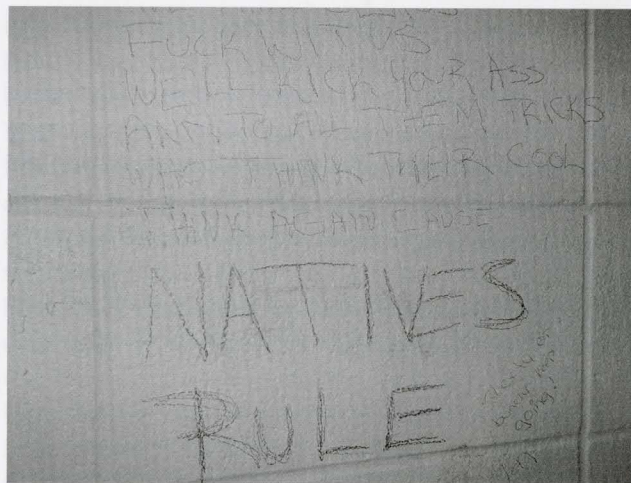 FUCK WIT US
WE'LL KICK YOUR ASS
AND TO ALL THEM TRICKS
WHO THINK THEIR COOL
THINK AGAIN CAUSE
NATIVES
RULE
going!